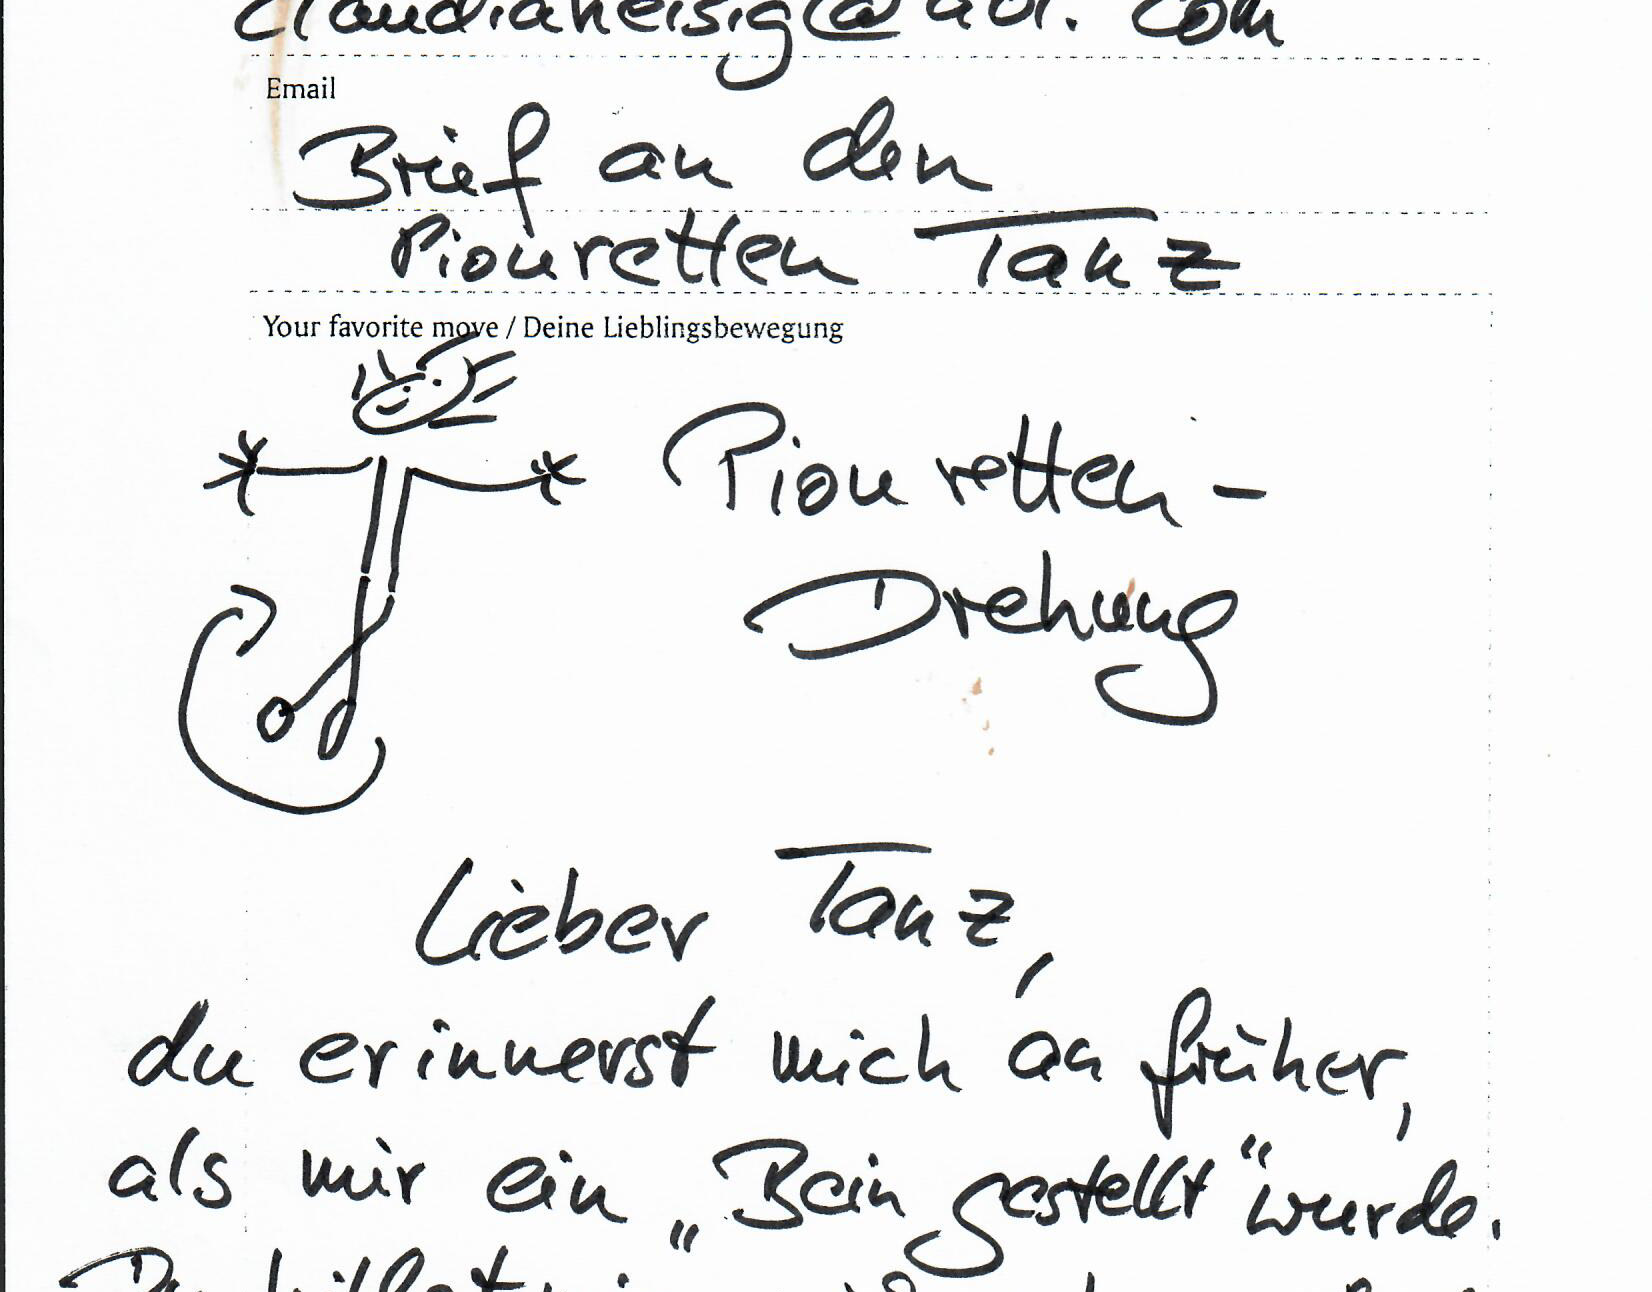 claudiaheisig@aol.com
Email
Brief an den
Piouretten Tanz
Your favorite move / Deine Lieblingsbewegung
Piouretten-
Drehung
Lieber Tanz,
du erinnerst mich an früher,
als mir ein „Bein gestellt“ wurde.
Du hilfst